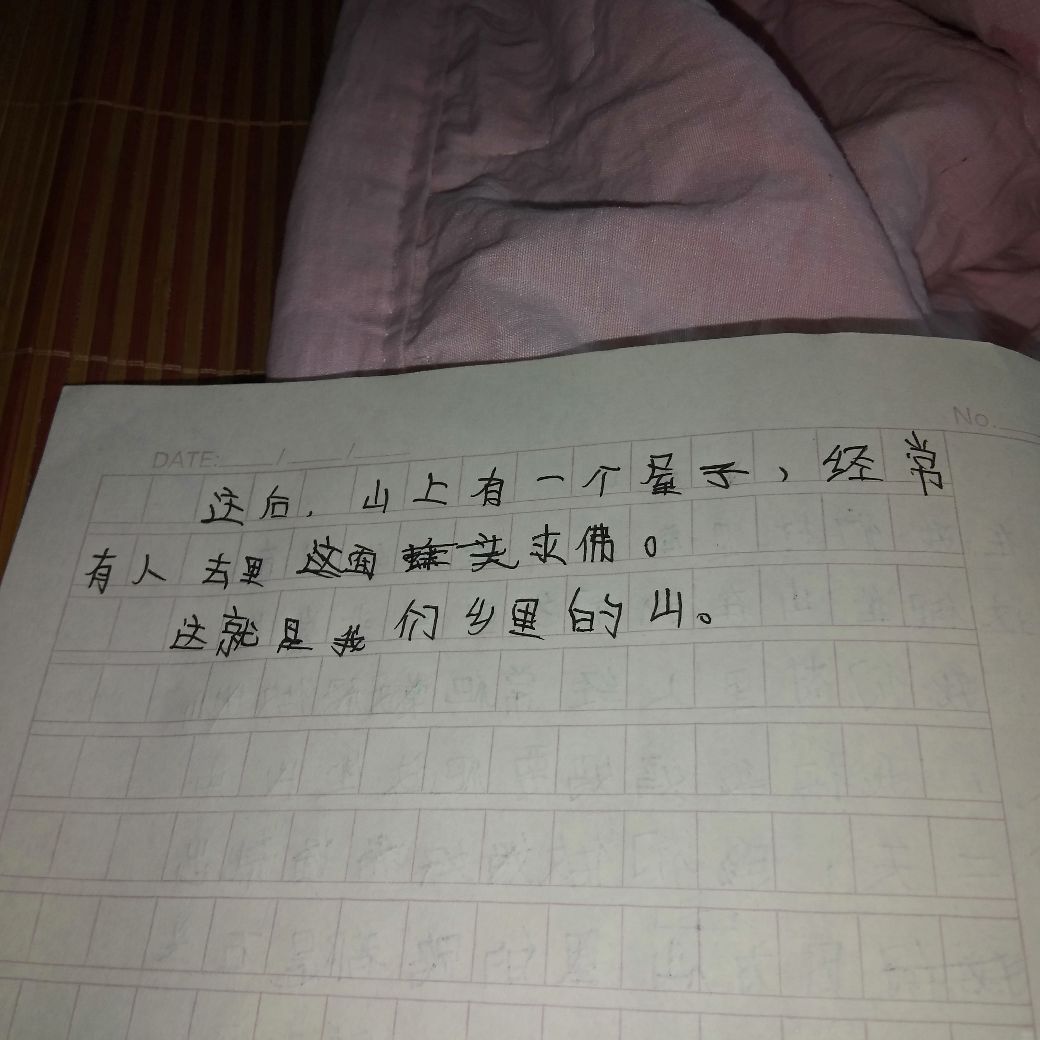 No.
DATE: / /
这后，山上有一个子，经常
有人去里这面求佛。
这就是我们乡里的山。